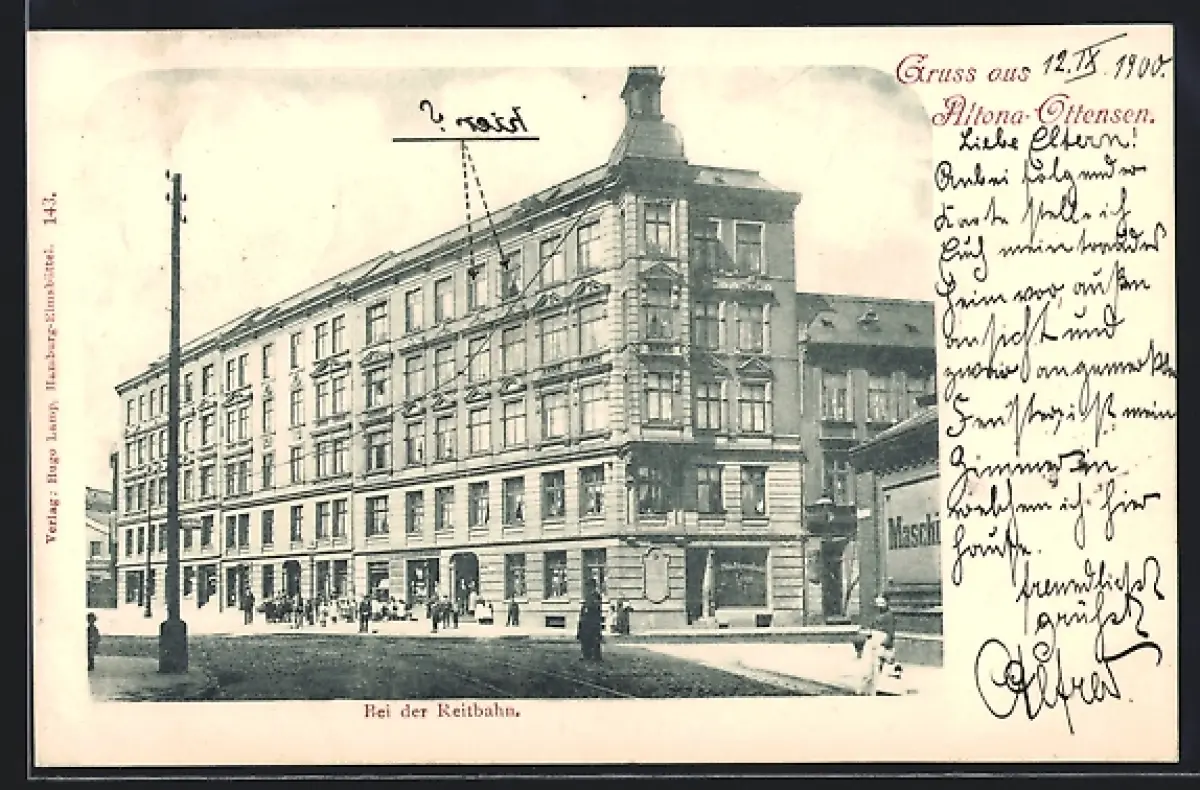 Gruss aus 12. IX. 1900.
Altona-Ottensen.
Hier ?
Liebe Eltern!
Anbei folgender
Karte stelle ich
Euch mein trautes
Heim vor, außen
ansicht und
zwar angemerkte
Fenster ist mein
Zimmer in
welchem ich hier
hause.
freundlichst
grüßt
Alfred.
Maschi
Bei der Reitbahn.
Verlag: Hugo Lamp, Hamburg-Eimsbüttel. 143.